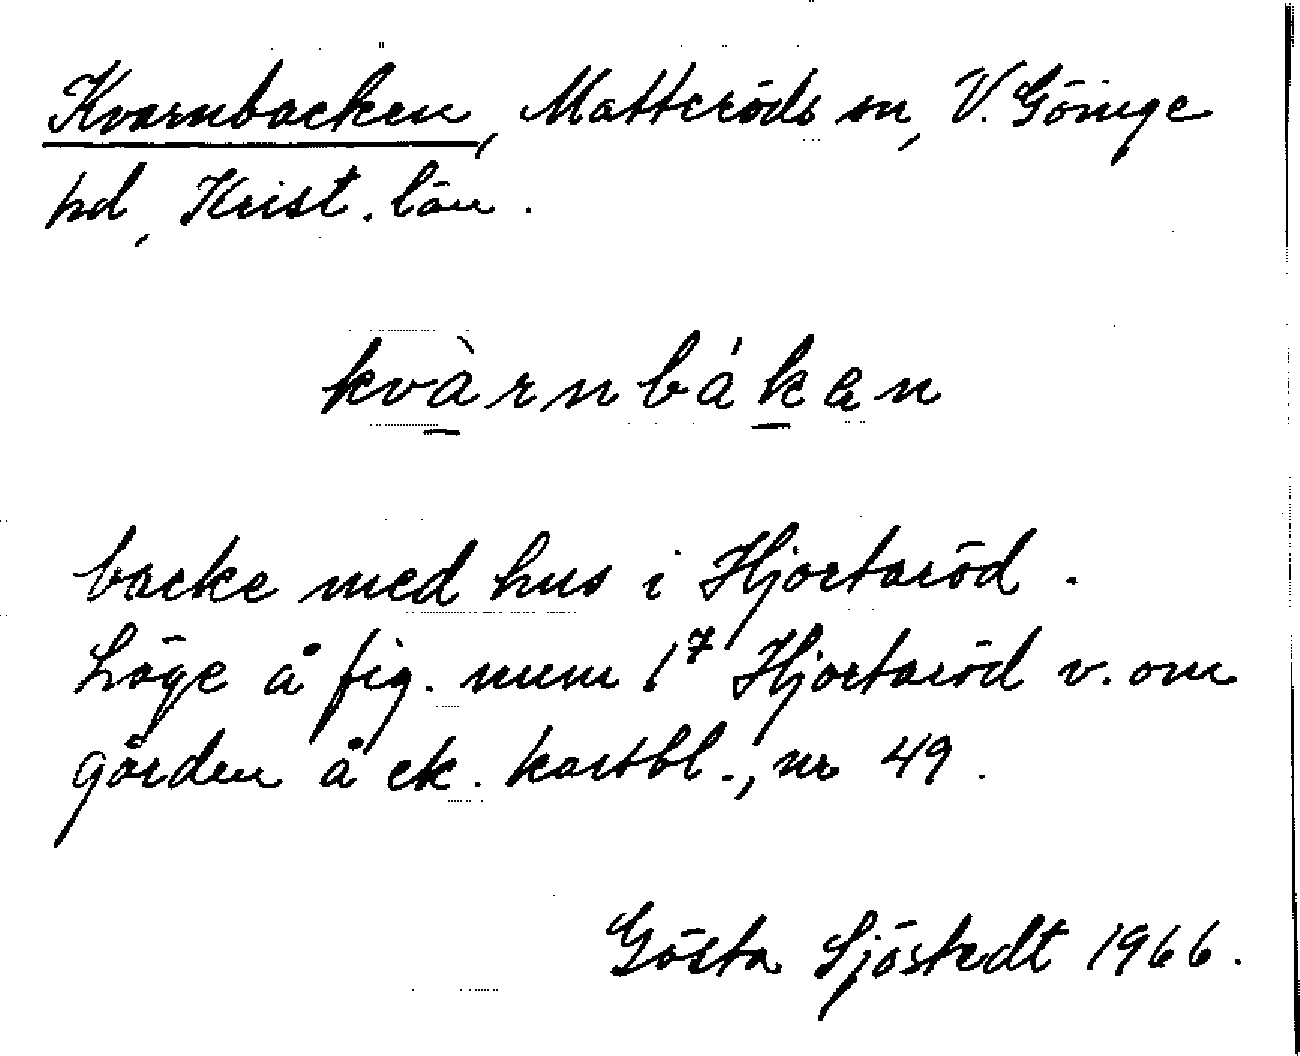 Kvarnbacken, Matteröds sn, V. Göinge
hd, Krist. län.
kvàrnbákan
backe med hus i Hjortaröd.
Läge å fig. num 1⁷ Hjortaröd v. om
gården å ek. kartbl., nr 49.
Gösta Sjöstedt 1966.